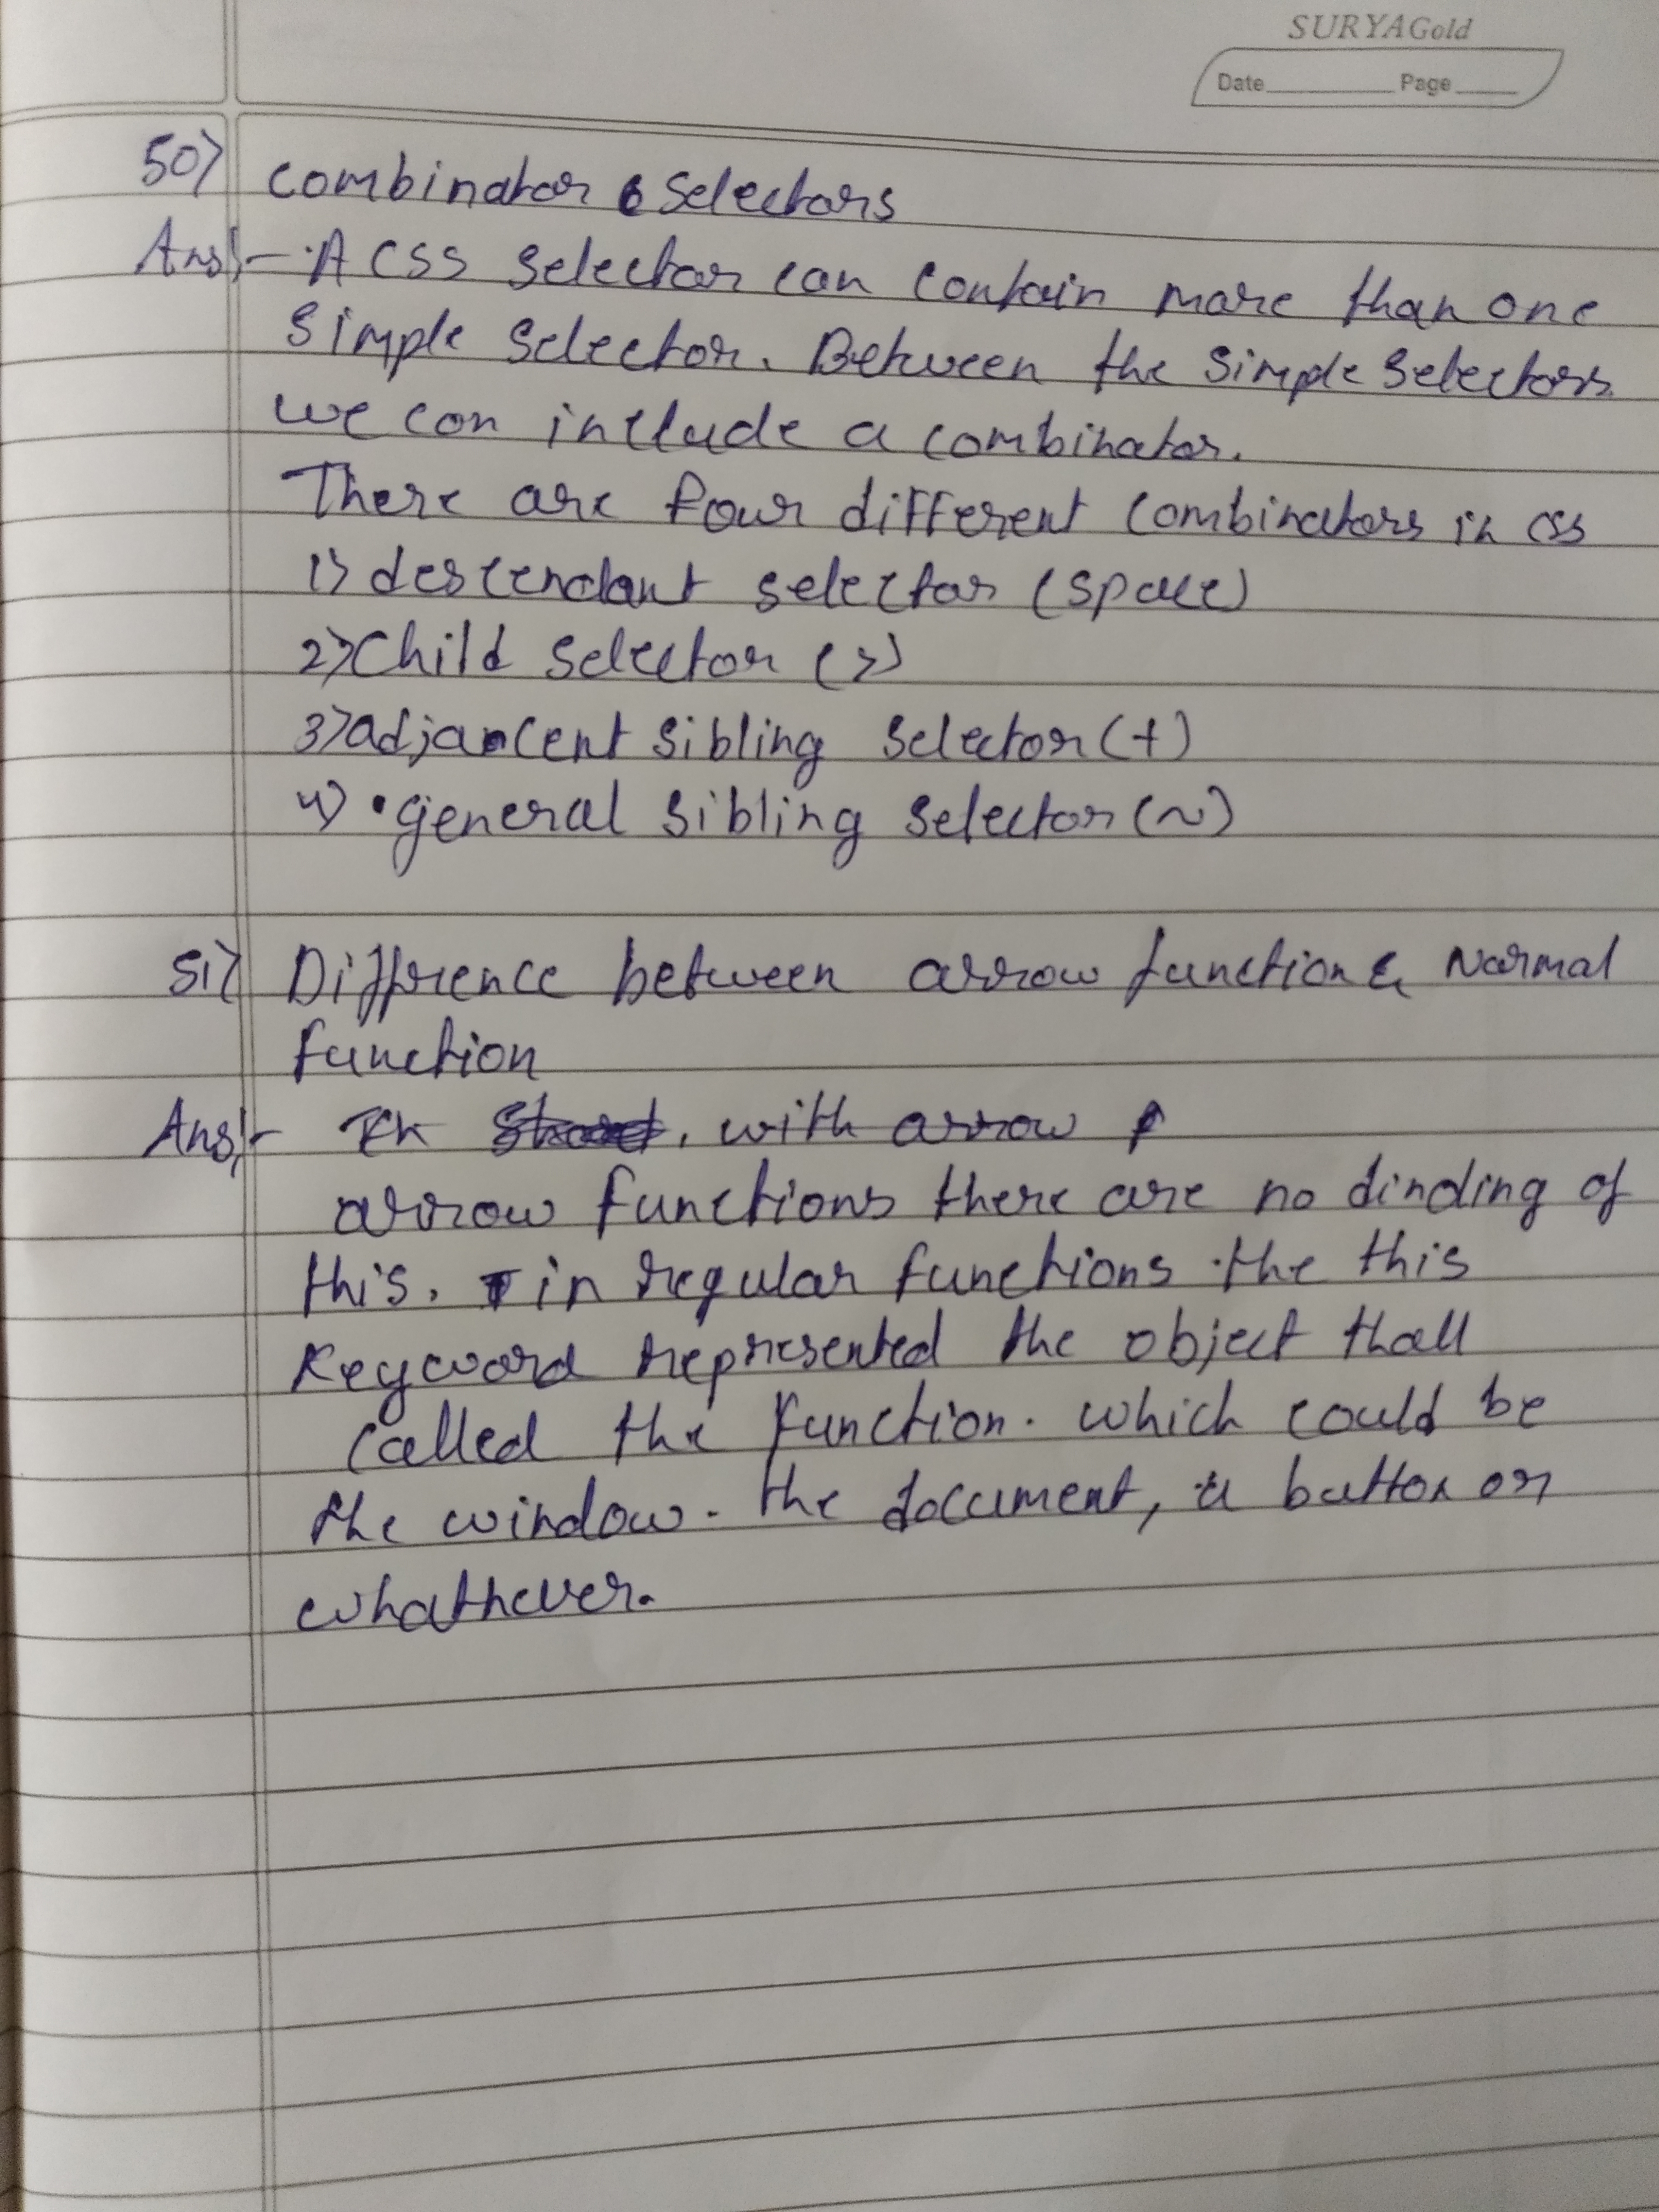 SURYAGold
Date Page
50) combinator selectors
Ans:- A CSS selector can contain more than one
simple selector. Between the simple selectors
we can include a combinator.
There are four different combinators in css
1) descendant selector (space)
2) Child selector (>)
3) adjancent sibling selector (+)
4) general sibling selector (~)
51) Diffrence between arrow function & Normal
function
Ans:- In . with arrow f
arrow functions there are no dinding of
this. in regular functions the this
keyword represented the object thall
called the function. which could be
the window. the document, a button or
whathever.